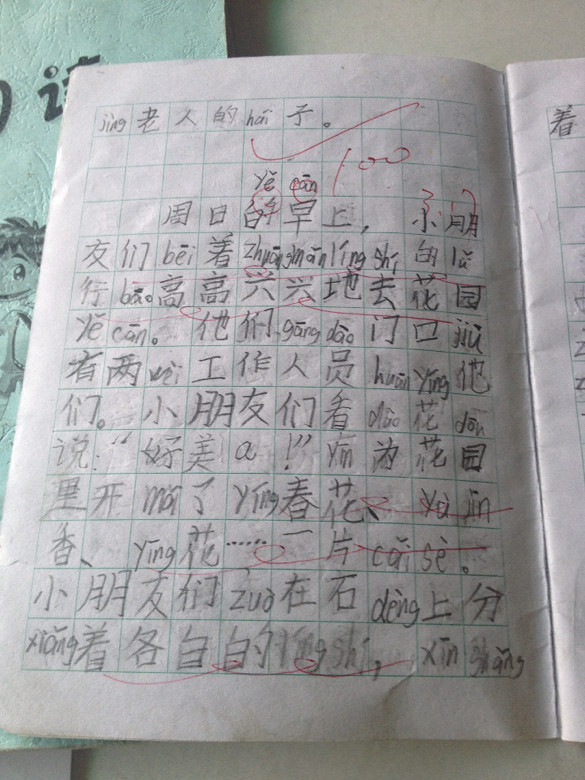 jìng老人的hái子。
100
yě cān
周日的早上，小朋
友们bēi着zhuāngmǎnlíngshí的lǚ
行bāo高高兴兴地去花园
yě cān。他们gāngdào门口jiù
有两wèi工作人员huānyíng他
们。小朋友们看dào花dōu
说：“好美a！”yīn为花园
里开mǎn了yíng春花、yù jīn
香、yīng花……一片cǎi sè。
小朋友们zuò在石dèng上分
xiǎng着各自的língshí，xīn shǎng
着